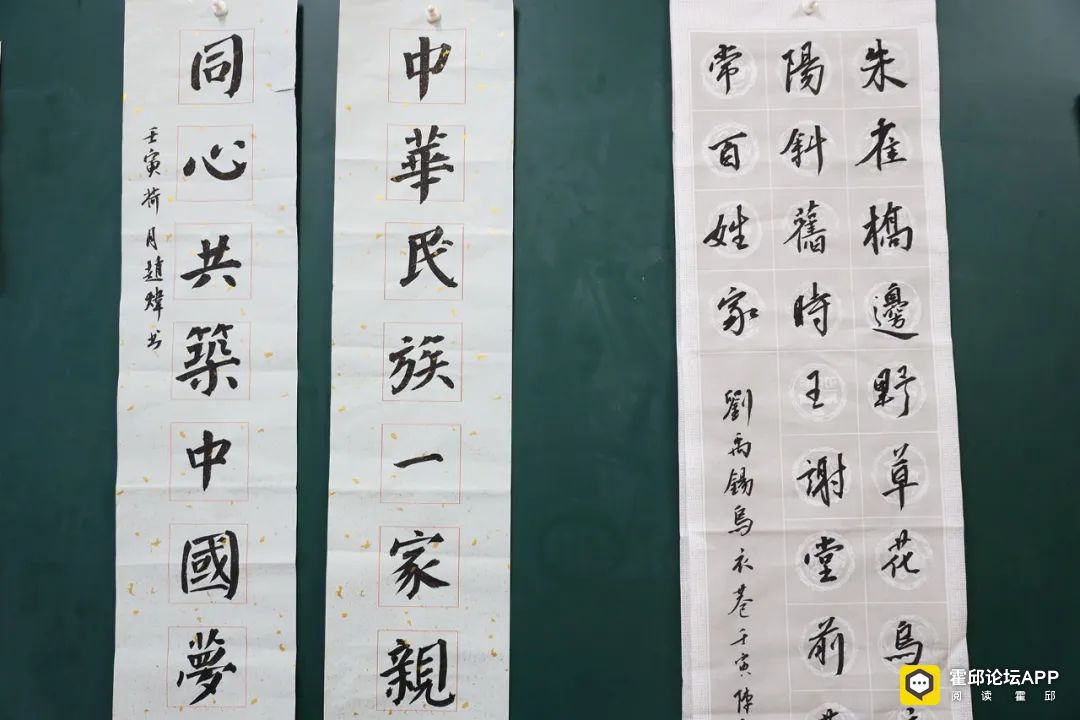 朱雀橋邊野草花烏
陽斜舊時王謝堂前
常百姓家
劉禹錫烏衣巷壬寅陳
中華民族一家親
同心共築中國夢
壬寅荷月趙煒书
霍邱论坛APP
阅读霍邱